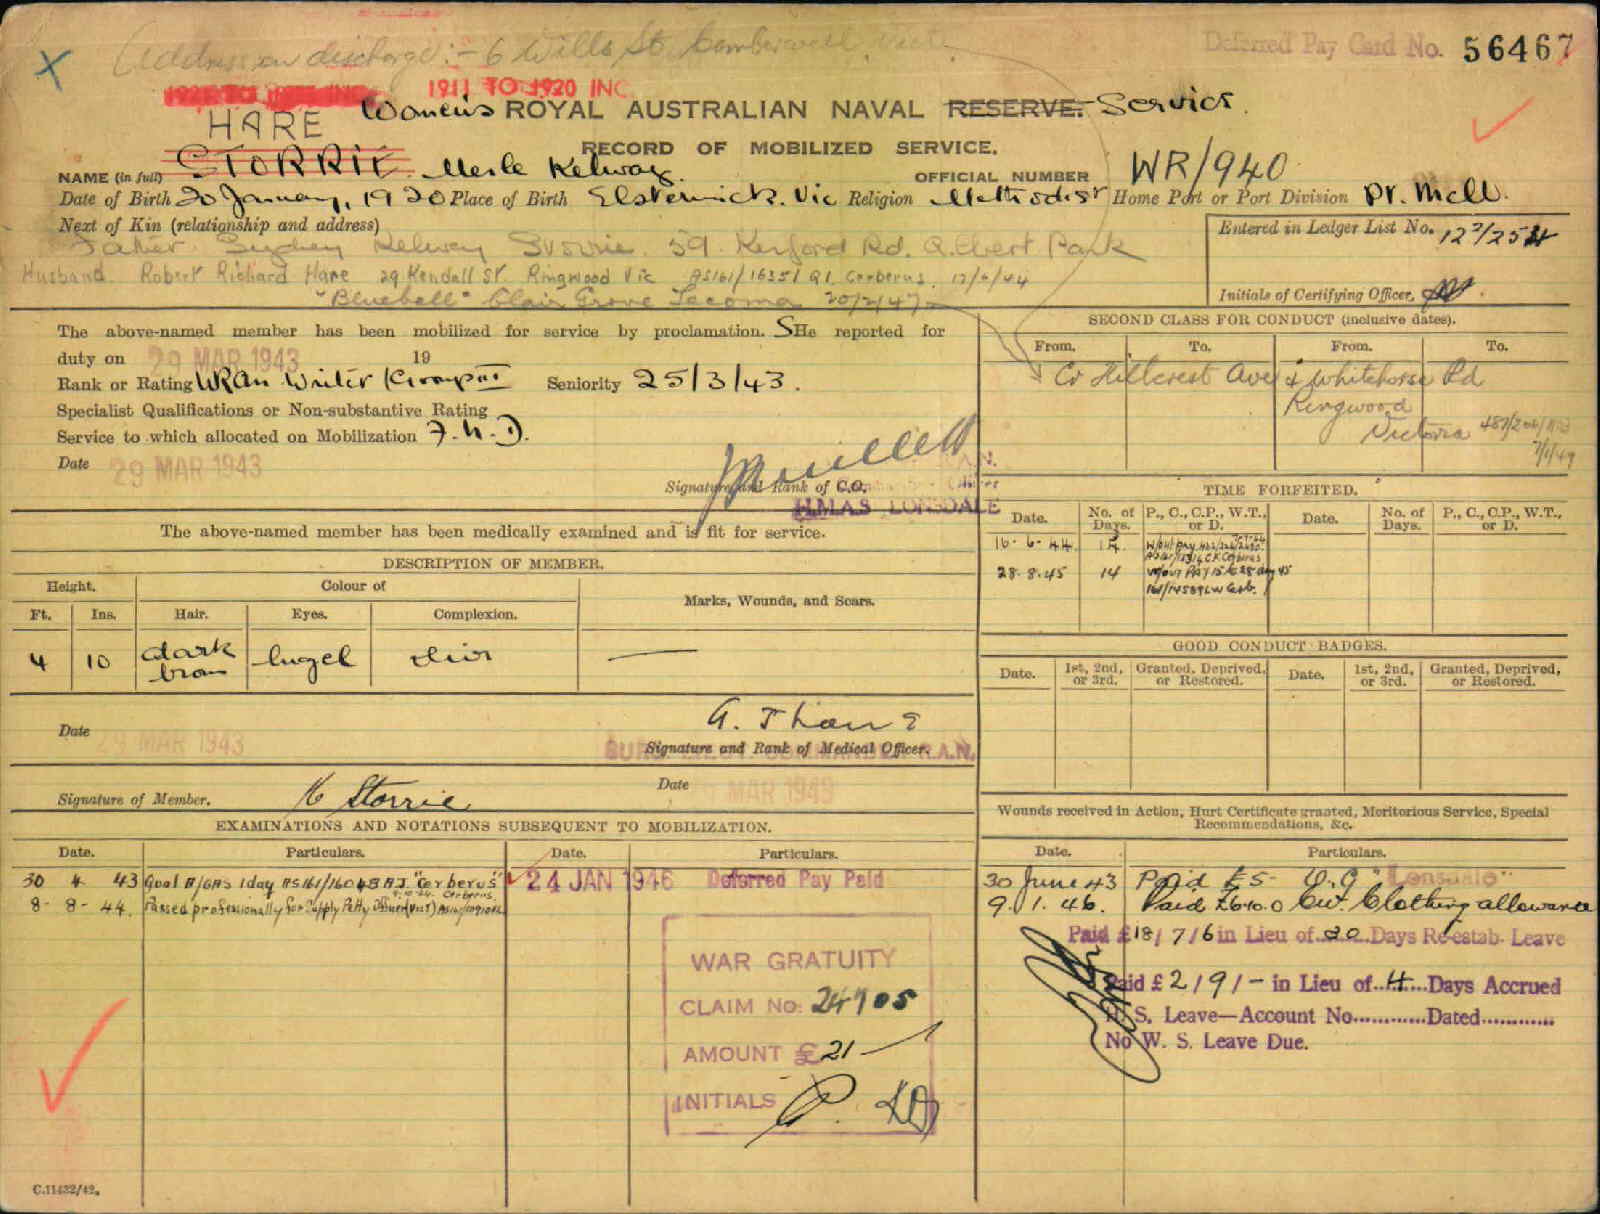 X (Address on discharge :- 6 Wills St. Camberwell. Vict.
Deferred Pay Card No. 56467
1911 TO 1920 INC.
Women's ROYAL AUSTRALIAN NAVAL RESERVE. Service.
HARE
RECORD OF MOBILIZED SERVICE.
NAME (in full) STORRIE. Merle Kelway. OFFICIAL NUMBER WR/940
Date of Birth 20 January, 1920 Place of Birth Elsternwick. Vic Religion Methodist Home Port or Port Division Pt. Melb.
Next of Kin (relationship and address)
Father. Sydney Kelway Storrie. 59. Kerford Rd. Albert Park
Husband Robert Richard Hare 29 Kendall St. Ringwood Vic AS161/16351 Q1. Cerberus. 17/6/44
"Bluebell" Clair Grove Tecoma 20/2/47
Entered in Ledger List No. 12²/254
Initials of Certifying Officer,
The above-named member has been mobilized for service by proclamation. SHe reported for
duty on 29 MAR 1943 19
Rank or Rating WRAN Writer (Group III Seniority 25/3/43.
Specialist Qualifications or Non-substantive Rating
Service to which allocated on Mobilization F.N.D.
Date 29 MAR 1943
Signature and Rank of C.O.
H.M.A.S LONSDALE
SECOND CLASS FOR CONDUCT (inclusive dates).
From. To. From. To.
Cr Hillcrest Ave & Whitehorse Rd
Ringwood
Victoria
7/1/49
The above-named member has been medically examined and is fit for service.
DESCRIPTION OF MEMBER.
Height. Colour of Marks, Wounds, and Scars.
Ft. Ins. Hair. Eyes. Complexion.
4 10 dark brown hazel olive —
TIME FORFEITED.
Date. No. of Days. P., C., C.P., W.T., or D. Date. No. of Days. P., C., C.P., W.T., or D.
16-6-44. 14.
28.8.45 14 w/out PAY 15 to 28 Aug 45
GOOD CONDUCT BADGES.
Date. 1st, 2nd, or 3rd. Granted, Deprived, or Restored. Date. 1st, 2nd, or 3rd. Granted, Deprived, or Restored.
Date 29 MAR 1943
Signature and Rank of Medical Officer.
Signature of Member. M Storrie Date 29 MAR 1943
EXAMINATIONS AND NOTATIONS SUBSEQUENT TO MOBILIZATION.
Date. Particulars. Date. Particulars.
30 4 43 Qual A/GAS 1 day AS161/16048 AJ. "Cerberus"
24 JAN 1946 Deferred Pay Paid
8-8-44. Passed professionally for Supply Petty Officer
WAR GRATUITY
CLAIM No: 24705
AMOUNT £21
INITIALS
Wounds received in Action, Hurt Certificate granted, Meritorious Service, Special
Recommendations, &c.
Date. Particulars.
30 June 43 Paid £5- U.G "Lonsdale"
9.1.46. Paid £6.10.0 Civ. Clothing allowance
Paid £18/7/6 in Lieu of 30 Days Re-estab. Leave
Paid £2/9/- in Lieu of 4 Days Accrued
W. S. Leave—Account No............Dated............
No W. S. Leave Due.
C.11432/42.